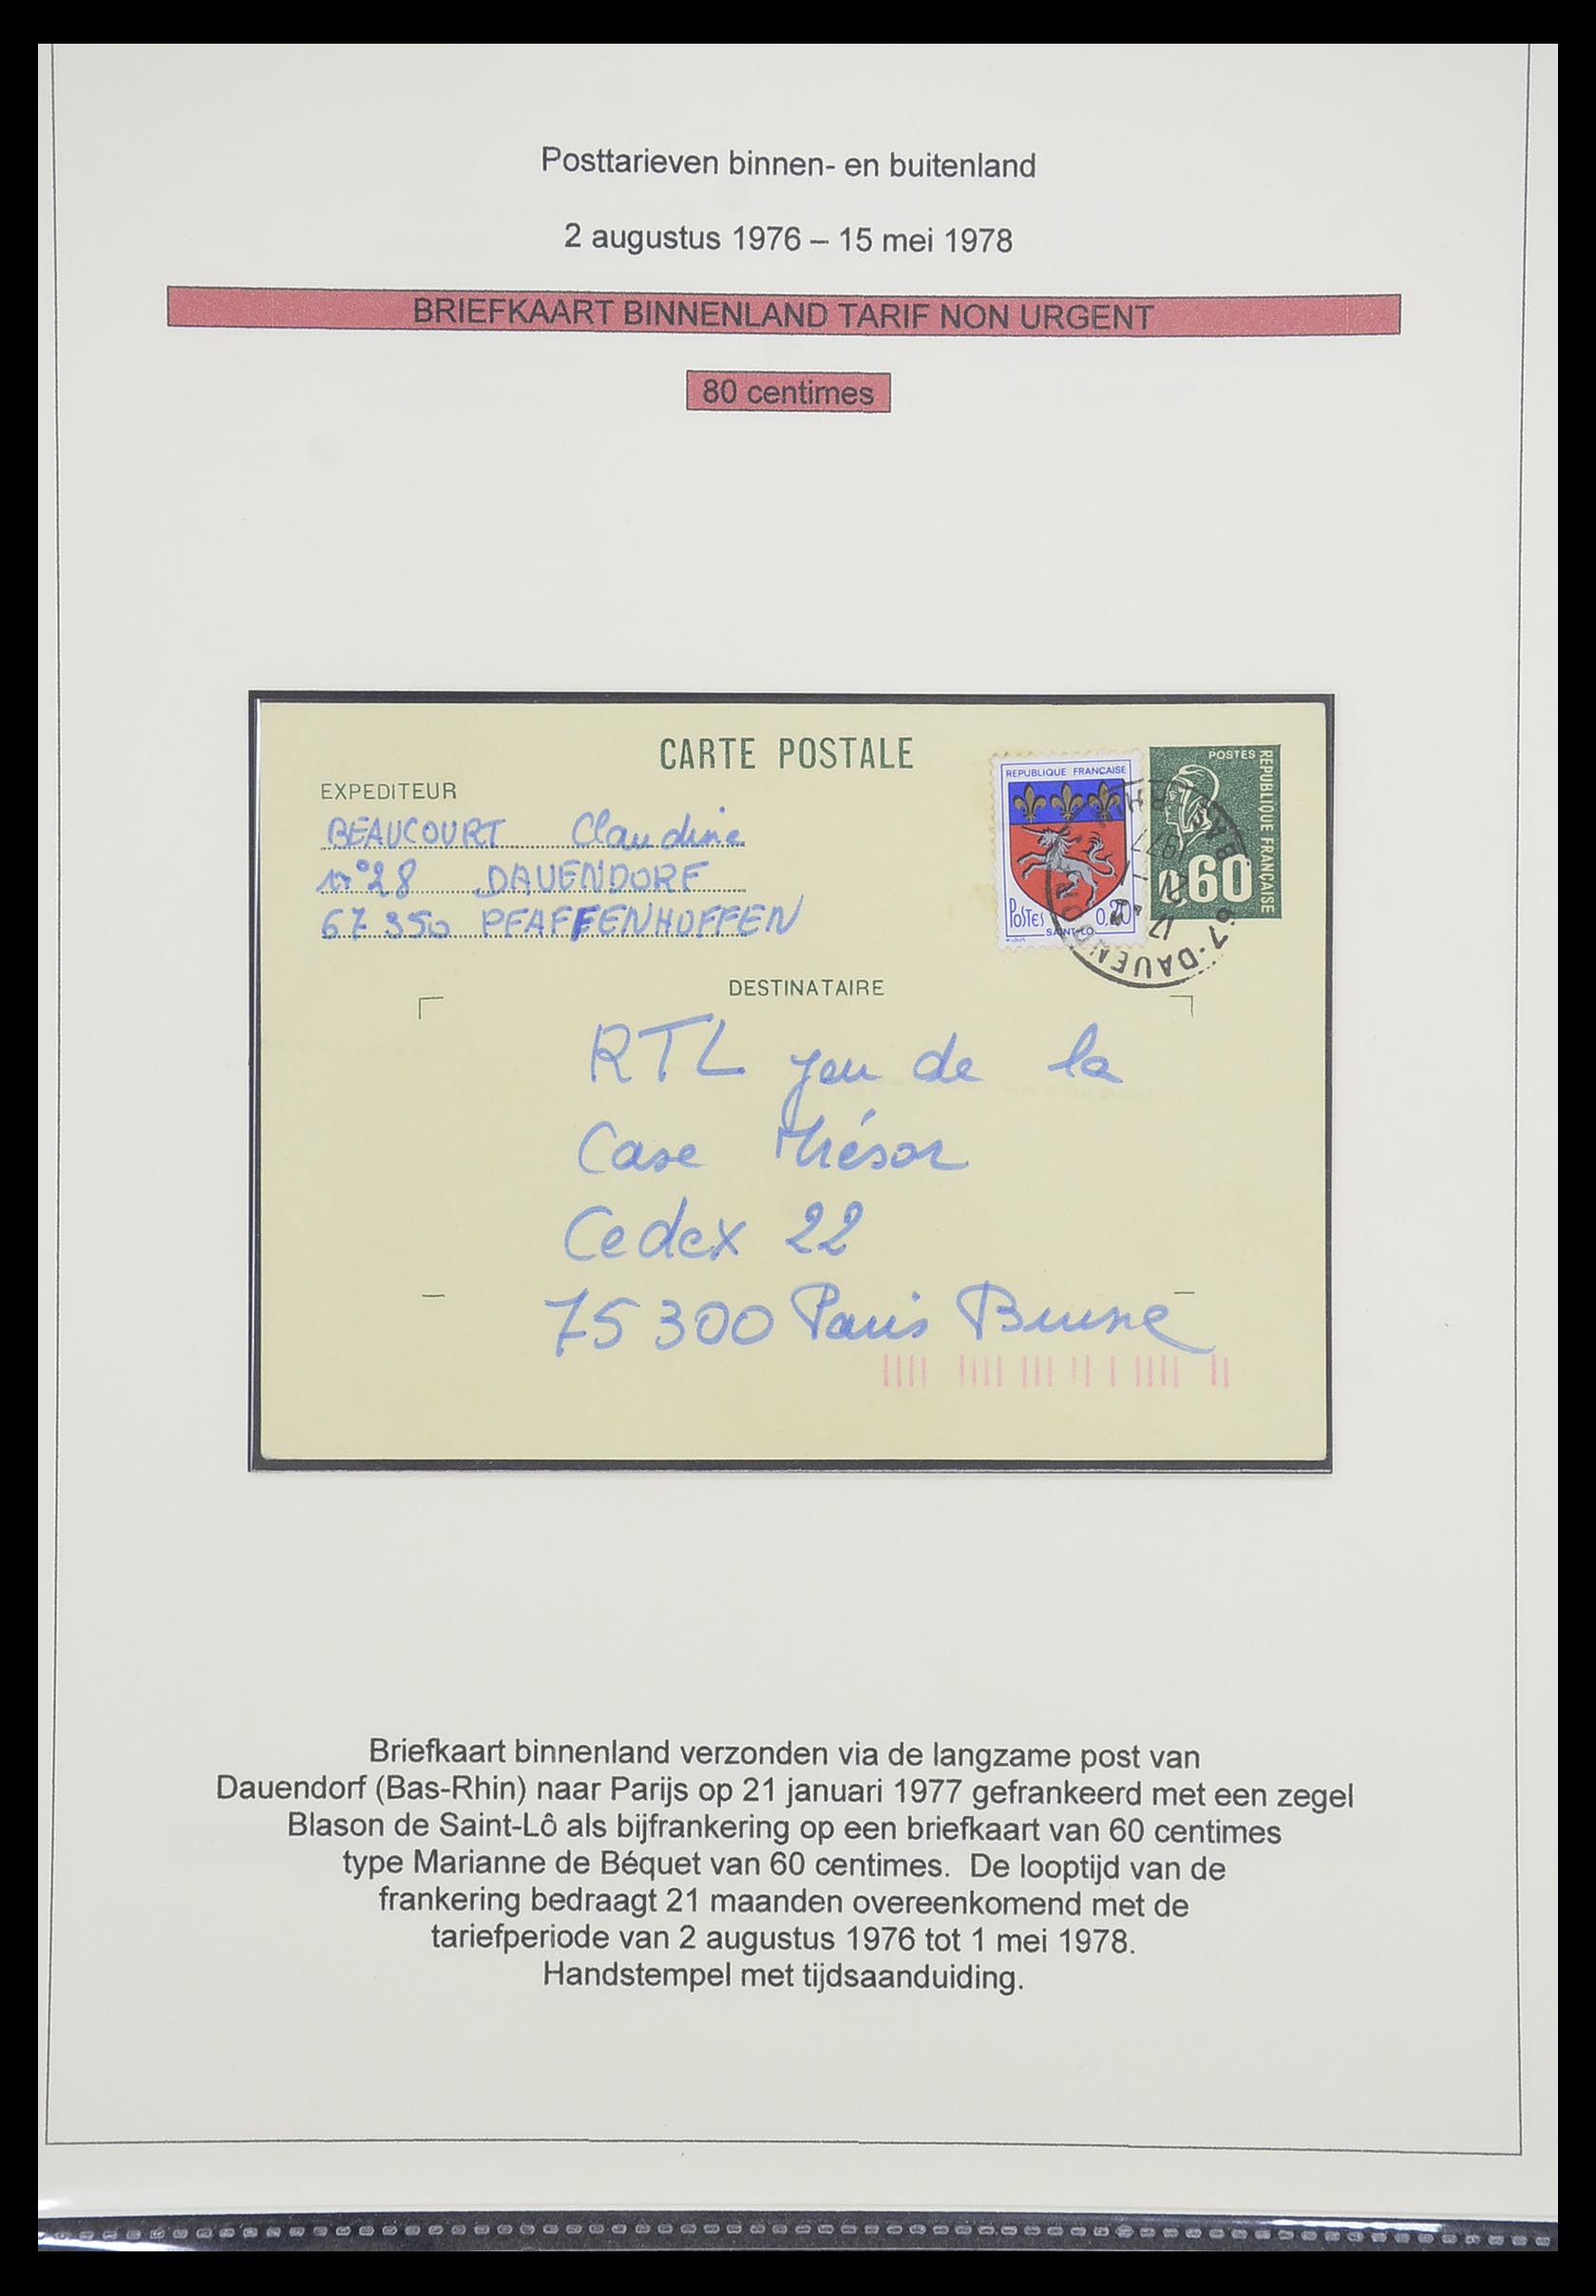 Posttarieven binnen- en buitenland
2 augustus 1976 – 15 mei 1978
BRIEFKAART BINNENLAND TARIF NON URGENT
80 centimes
CARTE POSTALE
EXPEDITEUR
BEAUCOURT Claudine
n°28 DAUENDORF
67 350 PFAFFENHOFFEN
REPUBLIQUE FRANÇAISE
POSTES 0.20
SAINT-LO
POSTES
REPUBLIQUE FRANÇAISE
0.60
67-DAUENDORF
BAS RHIN
17 H
21 -1
1977
DESTINATAIRE
RTL jeu de la
Case thrésor
Cedex 22
75300 Paris Brune
Briefkaart binnenland verzonden via de langzame post van
Dauendorf (Bas-Rhin) naar Parijs op 21 januari 1977 gefrankeerd met een zegel
Blason de Saint-Lô als bijfrankering op een briefkaart van 60 centimes
type Marianne de Béquet van 60 centimes. De looptijd van de
frankering bedraagt 21 maanden overeenkomend met de
tariefperiode van 2 augustus 1976 tot 1 mei 1978.
Handstempel met tijdsaanduiding.